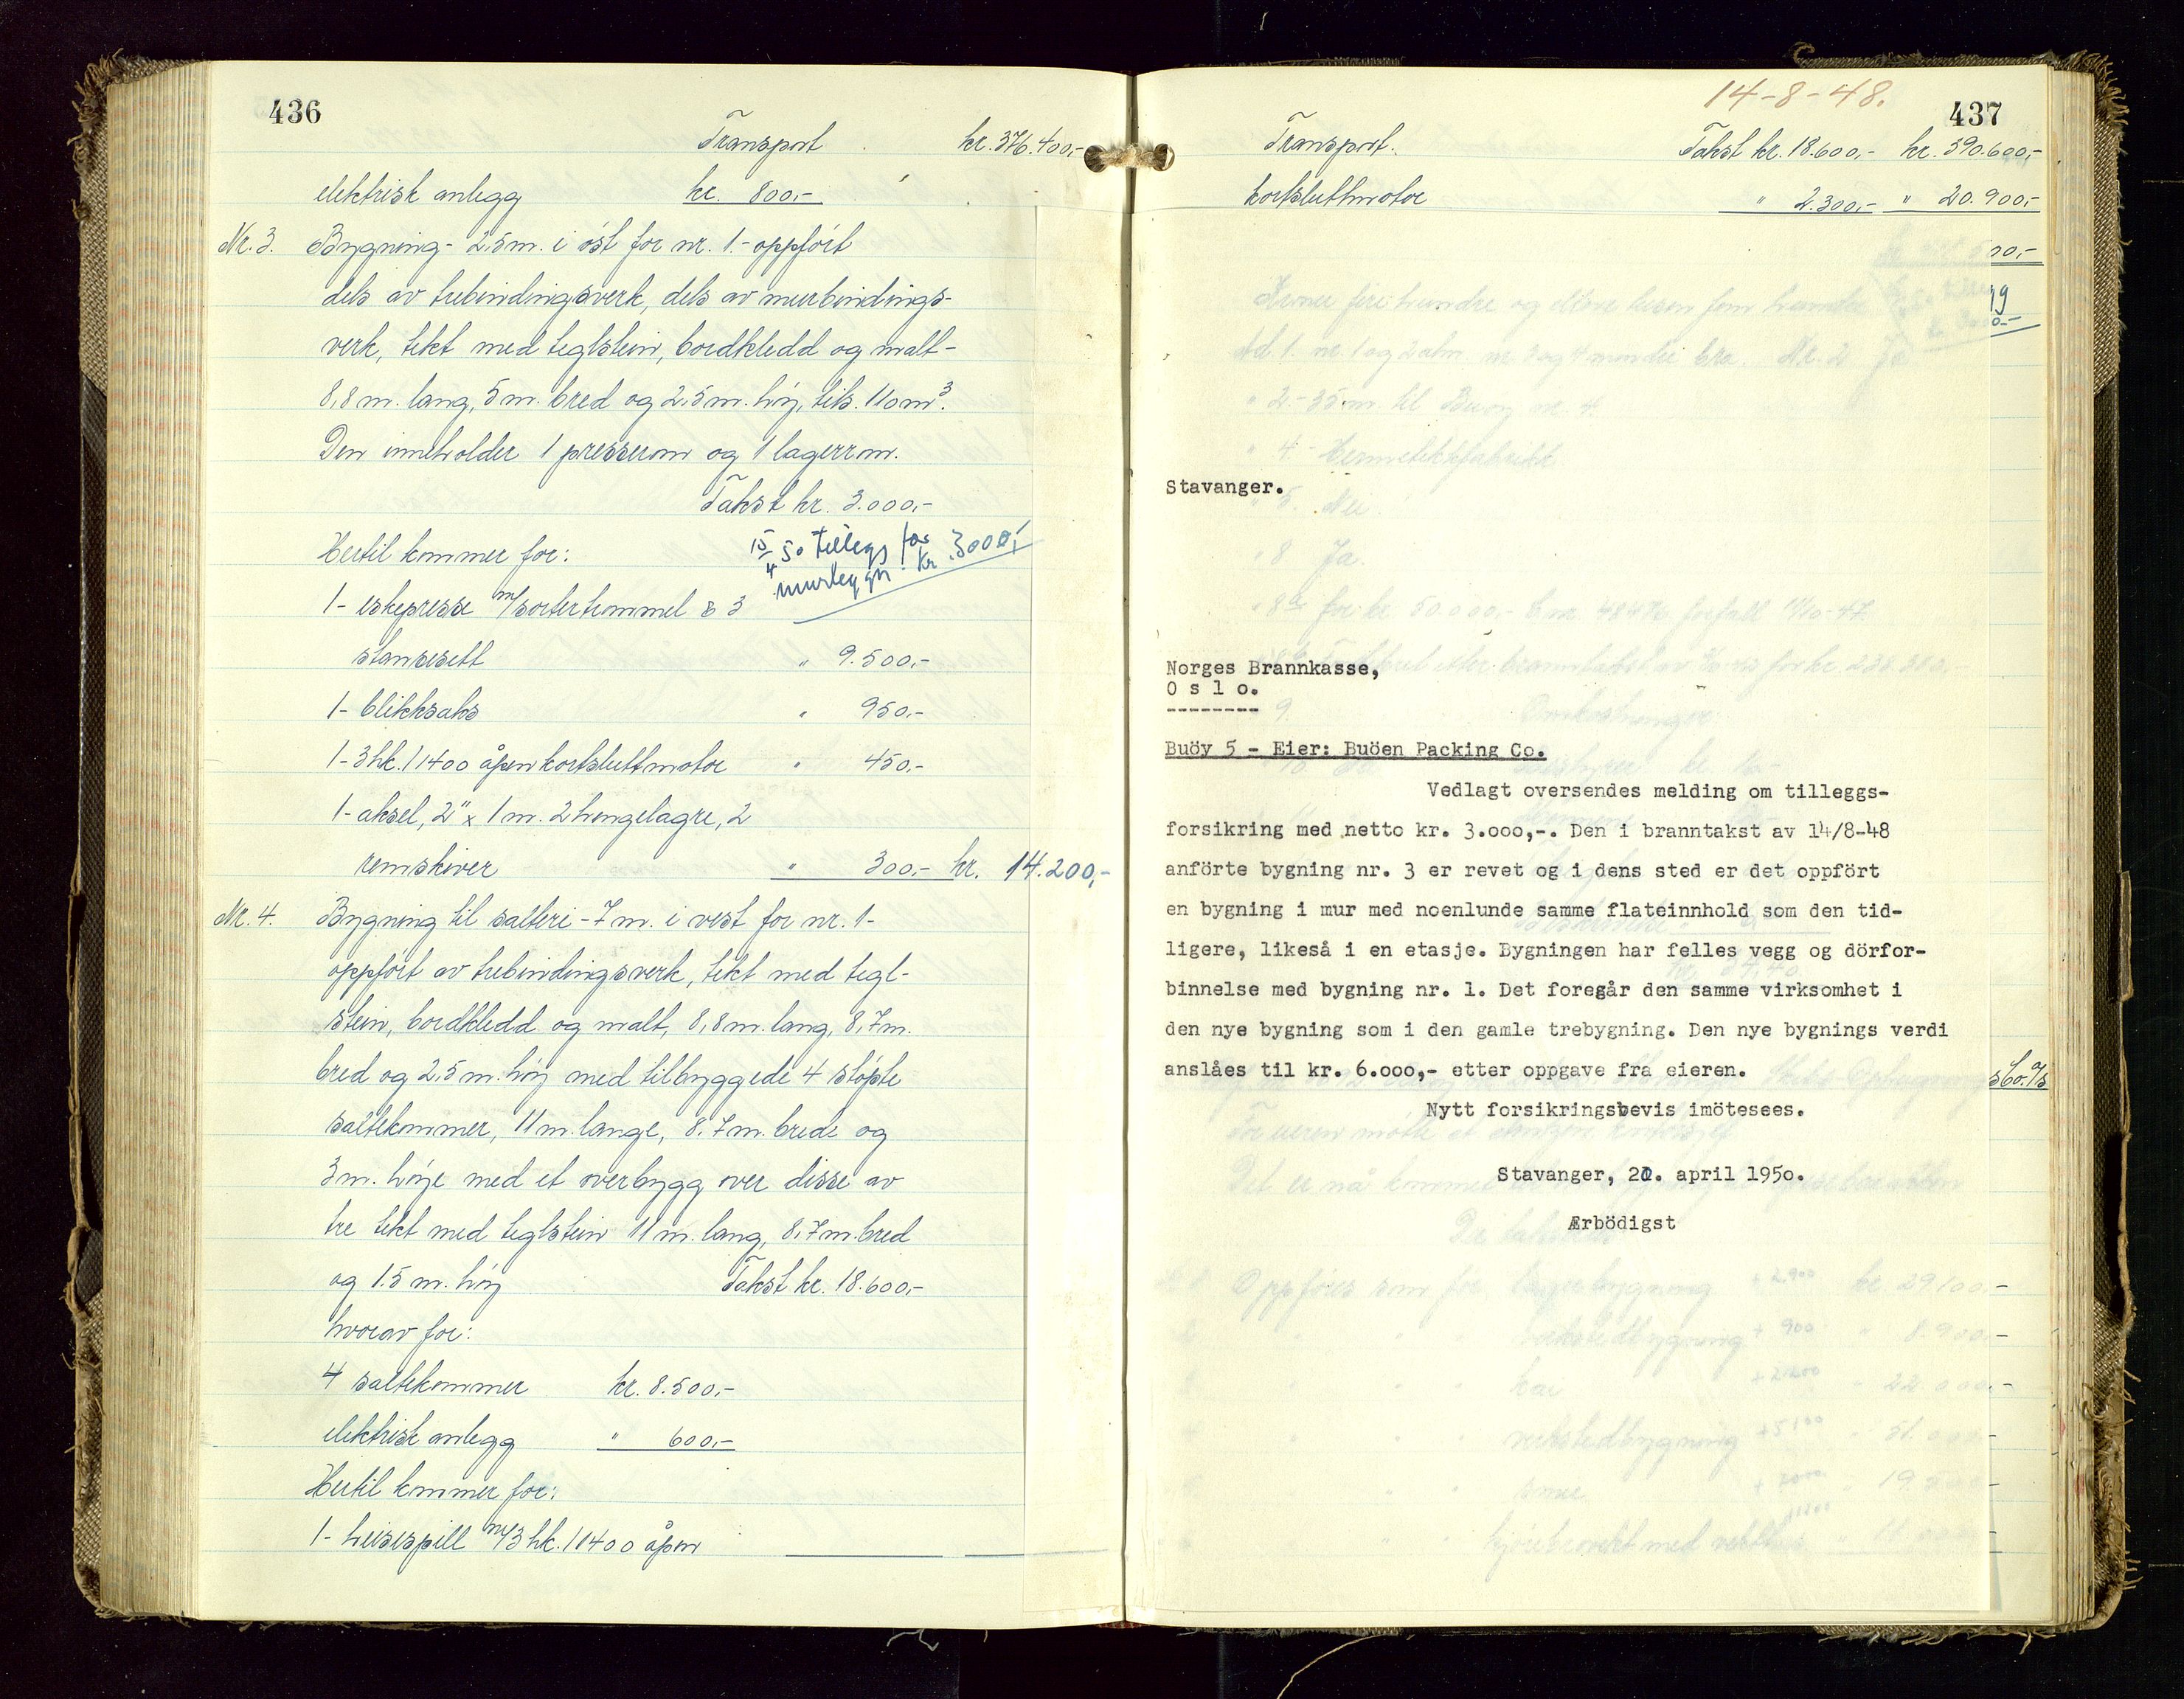 436
Transport kr. 376.400,-
elektrisk anlegg kr. 800,-
Nr. 3. Bygning - 2.5 m. i öst for nr. 1. - oppfört
dels av trebindingsverk, dels av murbindings-
verk, tekt med teglstein, bordkledd og malt -
8,8 m. lang, 5 m. bred og 2,5 m. höy, tils. 110 m³.
Den inneholder 1 presserom og 1 lagerrom.
Takst kr. 3.000,-
15/4 50 tillegg for
murbygn. kr. 3000,-
Hertil kommer for:
1 - eskepresse m/sortertrommel & 3
stansesett " 9.500,-
1 - blikksaks " 950,-
1 - 3 hk. / 1400 åpen kortsluttmotor " 450,-
1 - aksel, 2" x 1 m. 2 hengelagre, 2
remskiver " 300,- kr. 14.200,-
Nr. 4. Bygning til salteri - 7 m. i vest for nr. 1 -
oppfört av trebindingsverk, tekt med tegl-
stein, bordkledd og malt, 8,8 m. lang, 8,7 m.
bred og 2,5 m. höy med tilbyggede 4 stöpte
saltekommer, 11 m. lange, 8,7 m. brede og
3 m. höye med et overbygg over disse av
tre tekt med teglstein 11 m. lang, 8,7 m. bred
og 1.5 m. höy Takst kr. 18.600,-
hvorav for:
4 saltekommer kr. 8.500,-
elektrisk anlegg " 600,-
Hertil kommer for:
1 - heisespill m/3 hk. / 1400 åpen
14-8-48.
437
Transport. Takst kr. 18.600,- kr. 390.600,-
kortsluttmotor " 2.300,- " 20.900,-
00,-
19
0.-
Stavanger.
Norges Brannkasse,
O s l o.
--------
Buöy 5 - Eier: Buöen Packing Co.
Vedlagt oversendes melding om tilleggs-
forsikring med netto kr. 3.000,-. Den i branntakst av 14/8-48
anförte bygning nr. 3 er revet og i dens sted er det oppfört
en bygning i mur med noenlunde samme flateinnhold som den tid-
ligere, likeså i en etasje. Bygningen har felles vegg og dörfor-
binnelse med bygning nr. 1. Det foregår den samme virksomhet i
den nye bygning som i den gamle trebygning. Den nye bygnings verdi
anslåes til kr. 6.000,- etter oppgave fra eieren.
Nytt forsikringsbevis imötesees.
Stavanger, 20. april 1950.
Ærbödigst